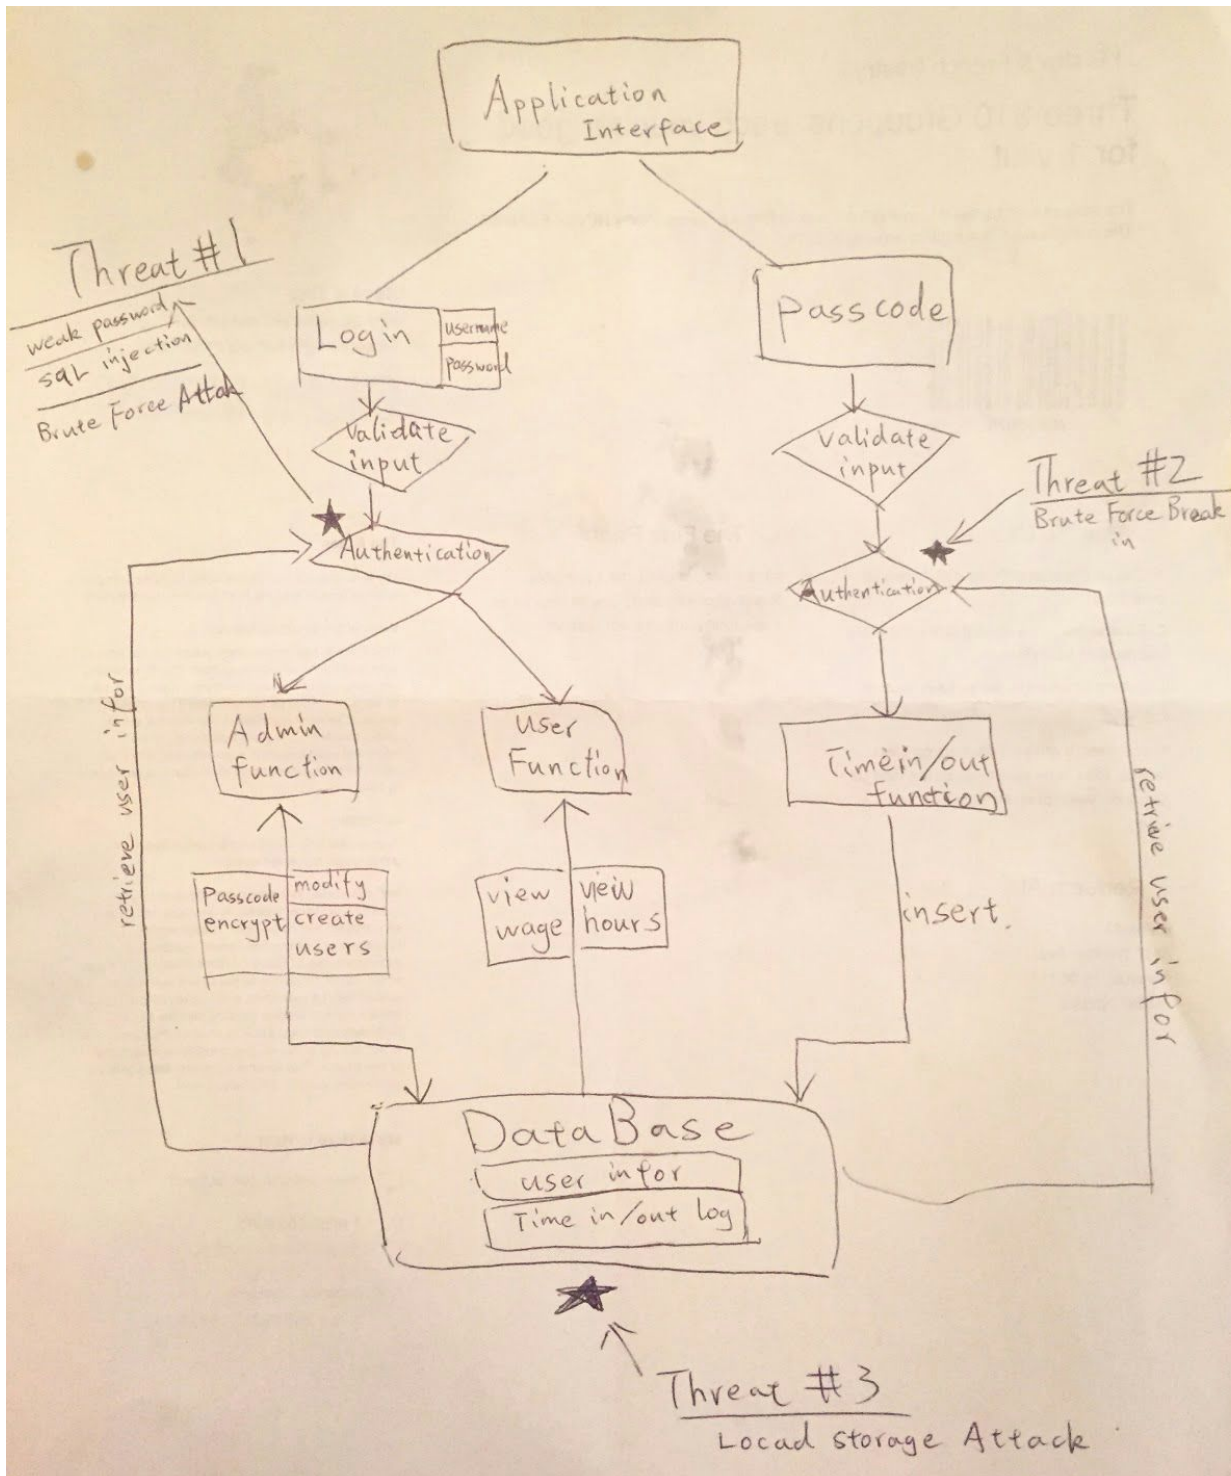 Application
Interface
Threat #1
weak password
SQL injection
Brute Force Attak
Login
username
password
Passcode
Validate
input
Validate
input
Threat #2
Brute Force Break
in
Authentication
Authentication
retrieve user infor
Admin
function
User
Function
Timein/out
function
retrive user infor
Passcode
encrypt
modify
create
users
view
wage
view
hours
insert.
DataBase
user infor
Time in/out log
Threat #3
Locad storage Attack